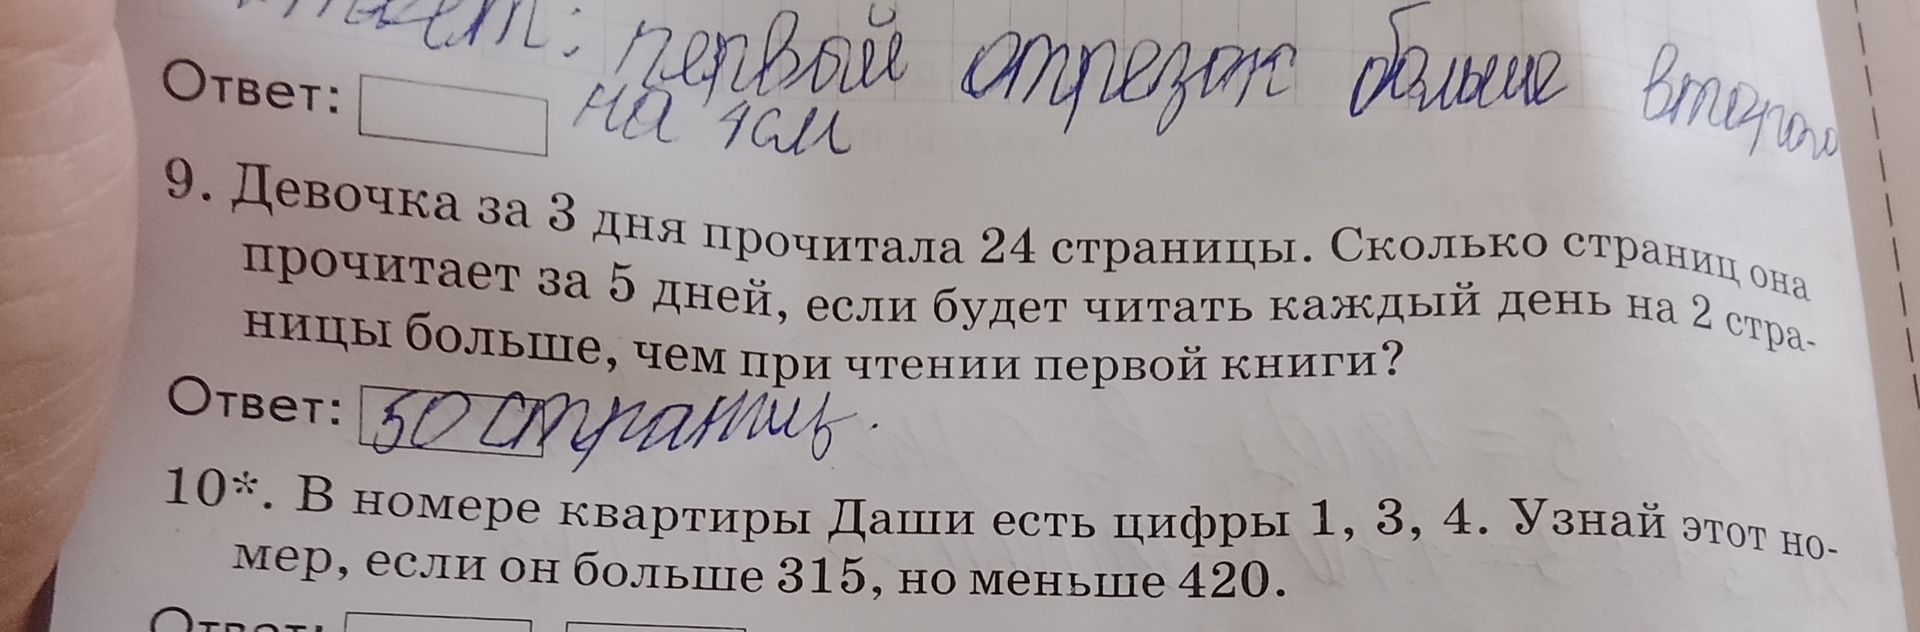 первой отрезок больше второго
Ответ: на 4см
9. Девочка за 3 дня прочитала 24 страницы. Сколько страниц она
прочитает за 5 дней, если будет читать каждый день на 2 стра-
ницы больше, чем при чтении первой книги?
Ответ: 50 страниц.
10*. В номере квартиры Даши есть цифры 1, 3, 4. Узнай этот но-
мер, если он больше 315, но меньше 420.
Ответ: